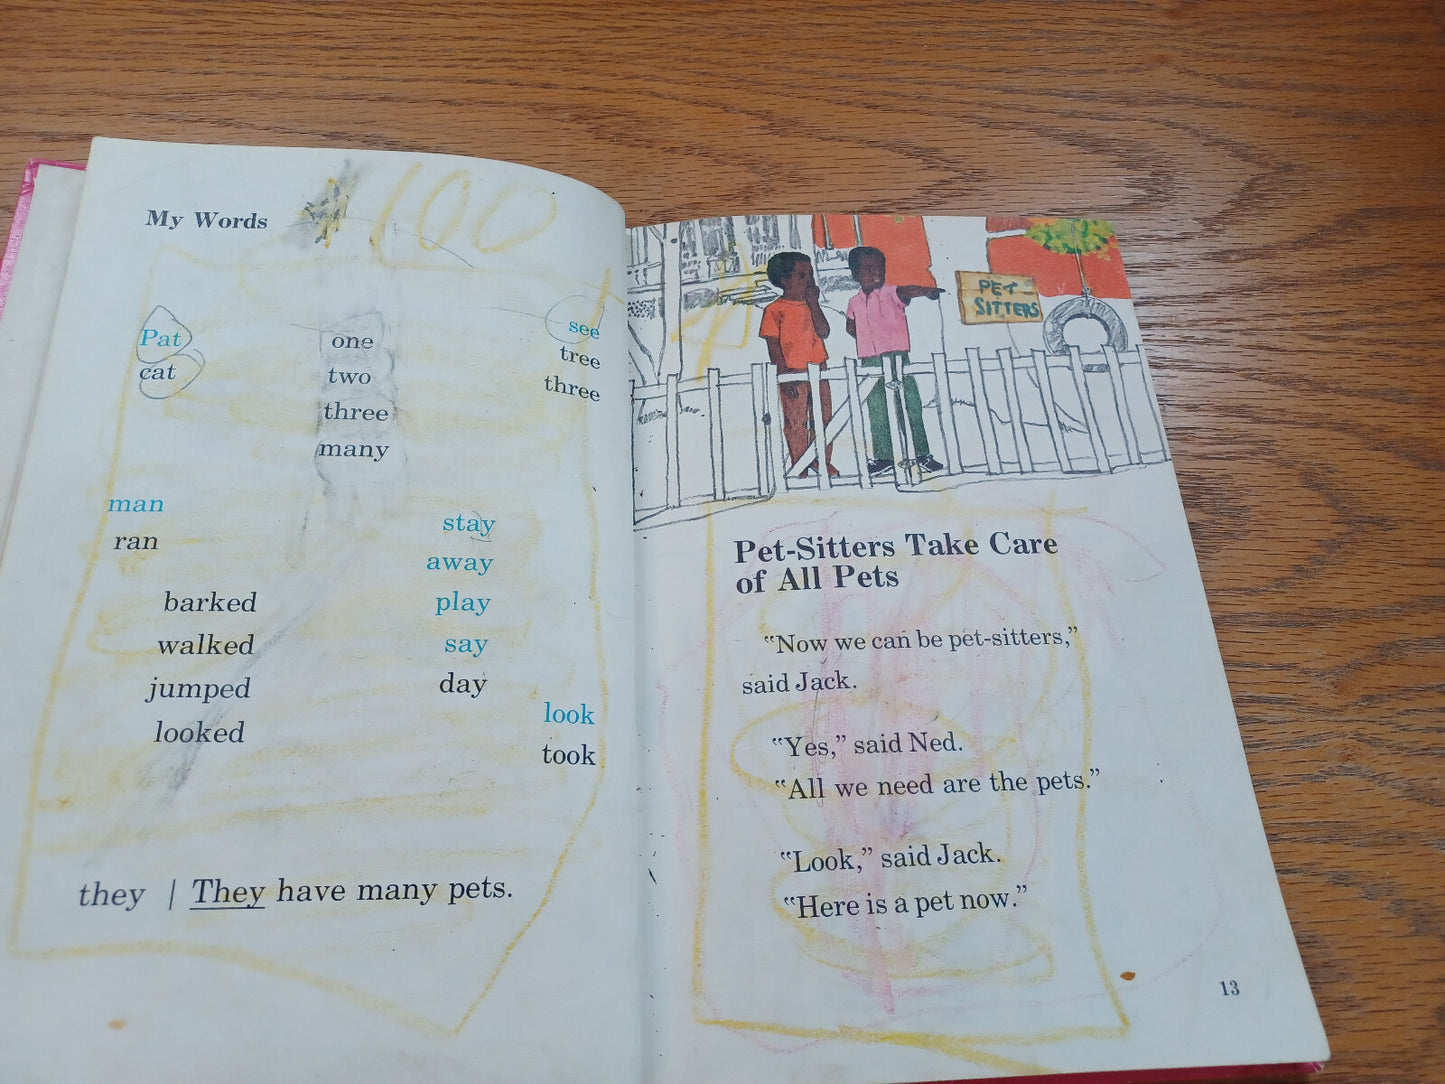 My Words
100
Pat
cat
one
two
three
many
see
tree
three
man
ran
barked
walked
jumped
looked
stay
away
play
say
day
look
took
they | They have many pets.
PET
SITTERS
Pet-Sitters Take Care
of All Pets
“Now we can be pet-sitters,”
said Jack.
“Yes,” said Ned.
“All we need are the pets.”
“Look,” said Jack.
“Here is a pet now.”
13